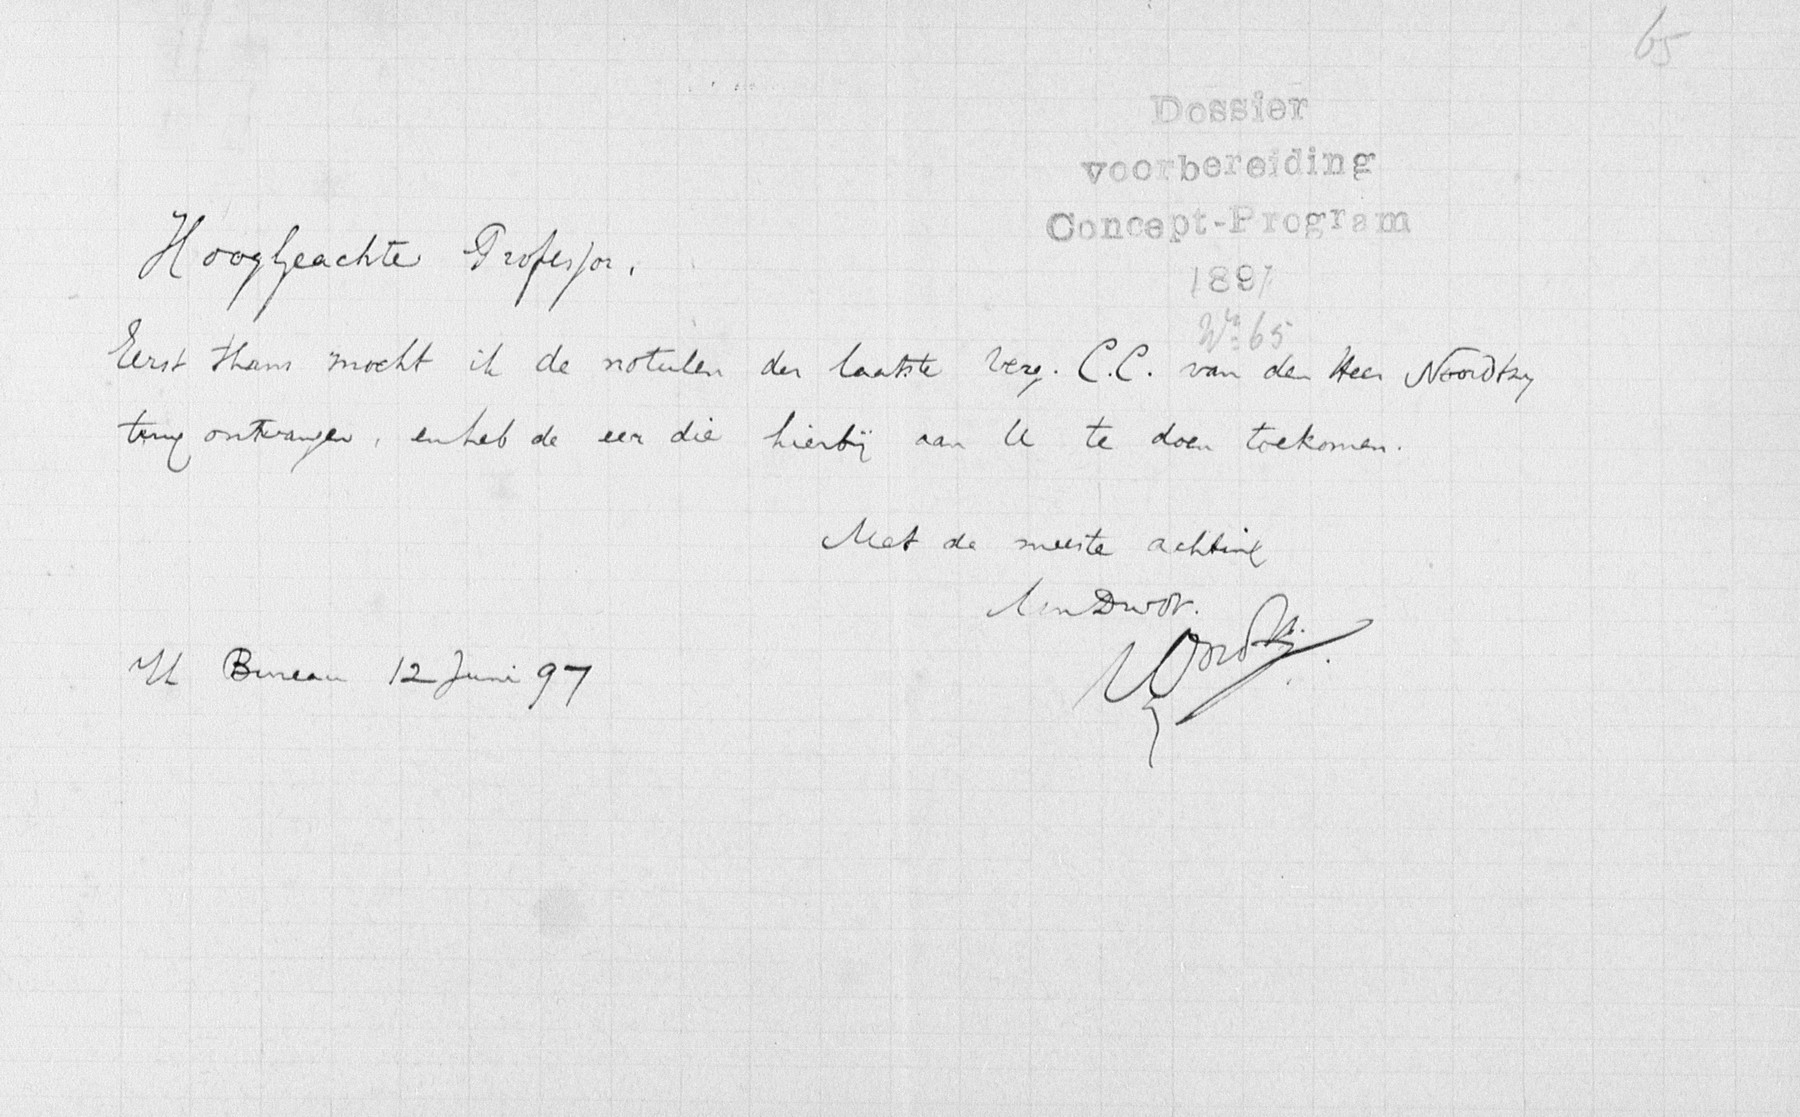 65
Dossier
voorbereiding
Concept-Program
1897
Nº 65
Hooggeachte Professor,
Eerst thans mocht ik de notulen der laatste verg. C.C. van den Heer Noordtzy
terug ontvangen, en heb de eer die hierbij aan U te doen toekomen.
Met de meeste achting
Uw Dwdr.
Bureau 12 Juni 97